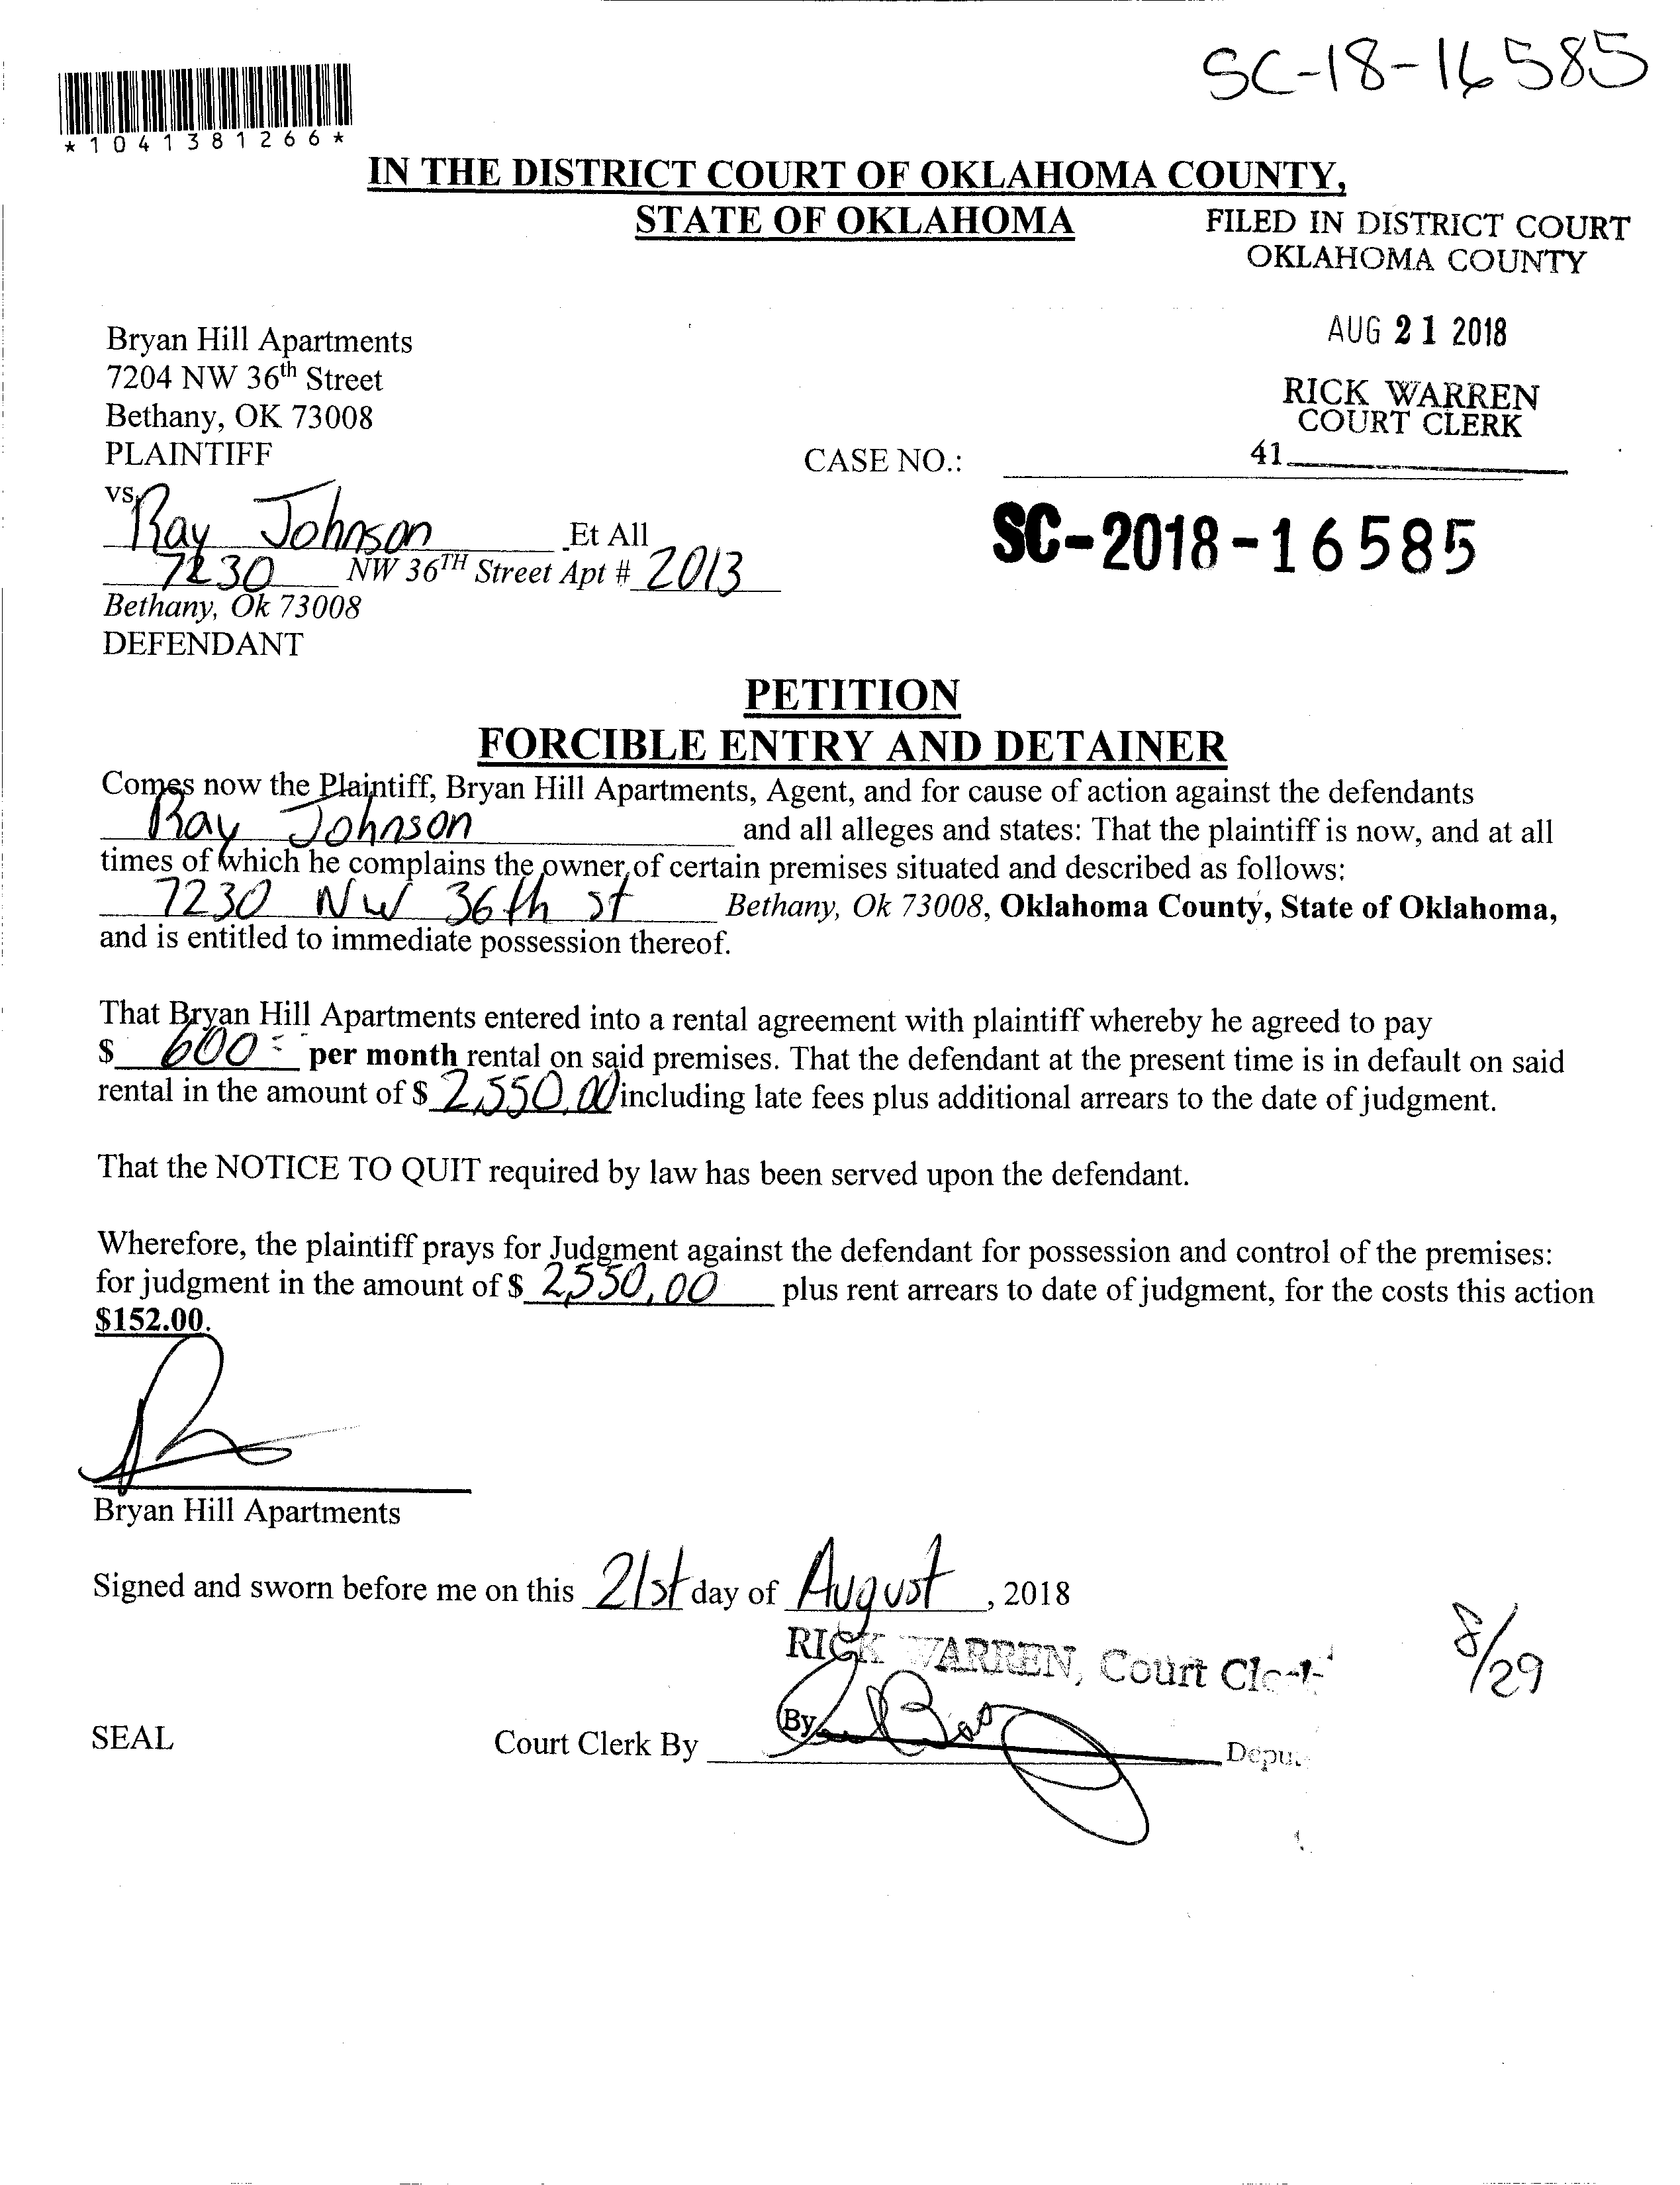 SC-18-16585
*1041381266*
IN THE DISTRICT COURT OF OKLAHOMA COUNTY,
STATE OF OKLAHOMA
FILED IN DISTRICT COURT
OKLAHOMA COUNTY
AUG 21 2018
RICK WARREN
COURT CLERK
41
Bryan Hill Apartments
7204 NW 36th Street
Bethany, OK 73008
PLAINTIFF
CASE NO.:
SC-2018-16585
vs.
Ray Johnson Et All
7230 NW 36TH Street Apt # 2013
Bethany, Ok 73008
DEFENDANT
PETITION
FORCIBLE ENTRY AND DETAINER
Comes now the Plaintiff, Bryan Hill Apartments, Agent, and for cause of action against the defendants
Ray Johnson and all alleges and states: That the plaintiff is now, and at all
times of which he complains the owner of certain premises situated and described as follows:
7230 NW 36th st Bethany, Ok 73008, Oklahoma County, State of Oklahoma,
and is entitled to immediate possession thereof.
That Bryan Hill Apartments entered into a rental agreement with plaintiff whereby he agreed to pay
$ 600 per month rental on said premises. That the defendant at the present time is in default on said
rental in the amount of $ 2,550.00 including late fees plus additional arrears to the date of judgment.
That the NOTICE TO QUIT required by law has been served upon the defendant.
Wherefore, the plaintiff prays for Judgment against the defendant for possession and control of the premises:
for judgment in the amount of $ 2,550.00 plus rent arrears to date of judgment, for the costs this action
$152.00.
Bryan Hill Apartments
Signed and sworn before me on this 21st day of August, 2018
RICK WARREN, Court Clerk
8/29
SEAL Court Clerk By By Depu